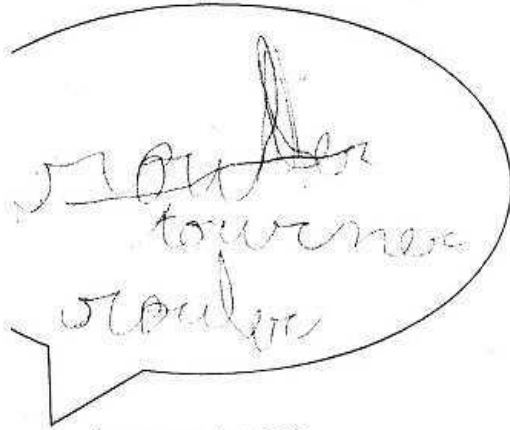 rouler
tourner
rouler